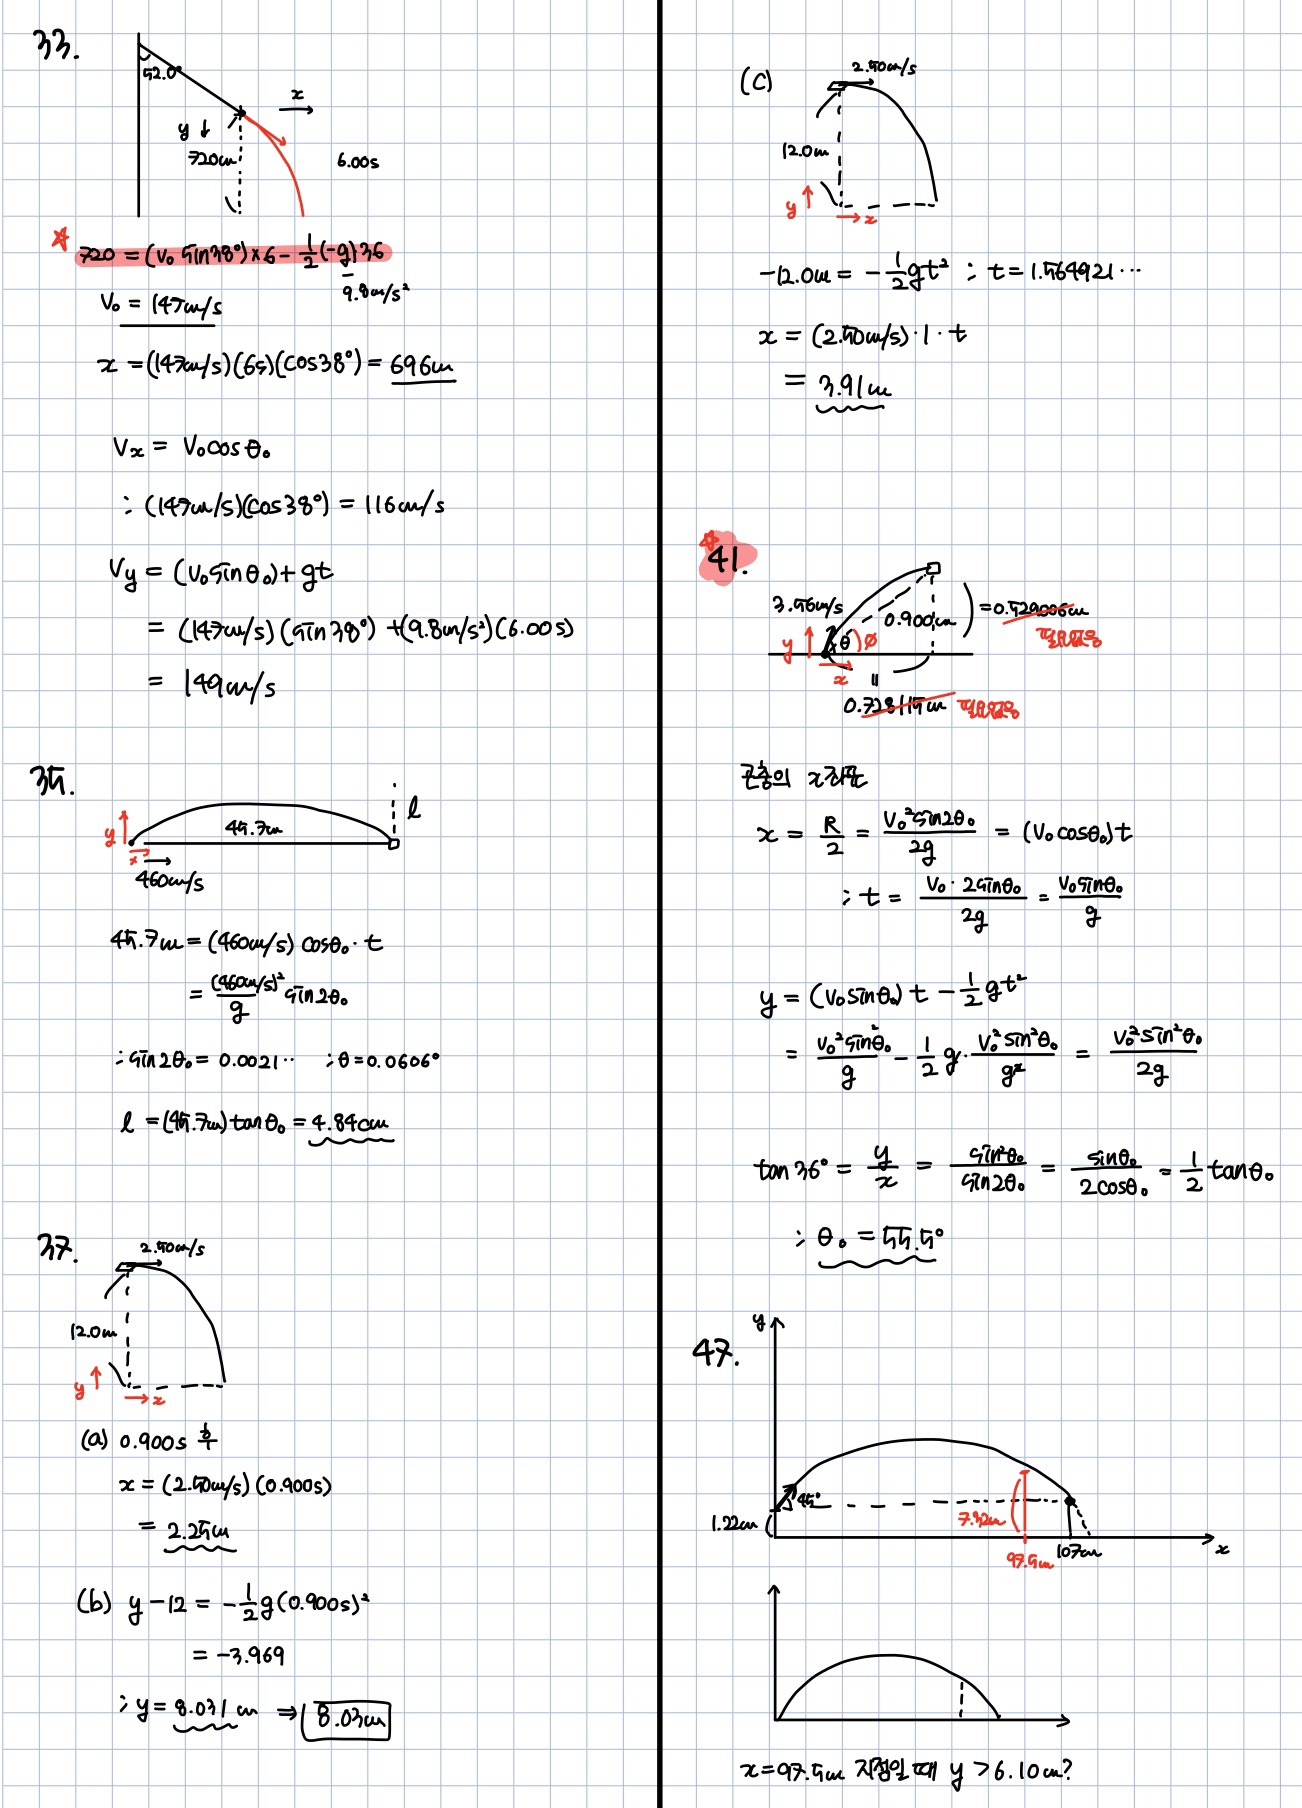 33.
52.0°
x
y ↓
720m
6.00s
☆ 720 = (v₀ sin38°)×6 - 1/2(-g)36
9.8m/s²
V₀ = 147m/s
x = (147m/s)(6s)(cos38°) = 696m
Vx = V₀cosθ₀
∴ (147m/s)(cos38°) = 116m/s
Vy = (V₀sinθ₀)+gt
= (147m/s)(sin38°)+(9.8m/s²)(6.00s)
= 149m/s
35.
45.7m
l
y
x
460m/s
45.7m = (460m/s) cosθ₀·t
= (460m/s)²/g sin2θ₀
∴ sin2θ₀ = 0.0021·· ∴ θ=0.0606°
l = (45.7m)tanθ₀ = 4.84cm
37.
2.50m/s
12.0m
y
x
(a) 0.900s 후
x = (2.50m/s)(0.900s)
= 2.25m
(b) y-12 = -1/2g(0.900s)²
= -3.969
∴ y = 8.031 m ⇒ 8.03m
(c)
2.50m/s
12.0m
y
x
-12.0m = -1/2gt² ∴ t=1.564921···
x = (2.50m/s)·1·t
= 3.91m
☆ 41.
3.56m/s
0.900m
=0.529006m
필요없음
y
θ
∅
x
=
0.728115m 필요없음
곤충의 x좌표
x = R/2 = V₀²sin2θ₀/2g = (V₀cosθ₀)t
∴ t = V₀·2sinθ₀/2g = V₀sinθ₀/g
y = (V₀sinθ₀)t - 1/2gt²
= V₀²sin²θ₀/g - 1/2g·V₀²sin²θ₀/g² = V₀²sin²θ₀/2g
tan36° = y/x = sin²θ₀/sin2θ₀ = sinθ₀/2cosθ₀ = 1/2tanθ₀
∴ θ₀ = 55.5°
47.
y
45°
1.22m
7.32m
97.5m
107m
x
x=97.5m 지점일 때 y>6.10m?